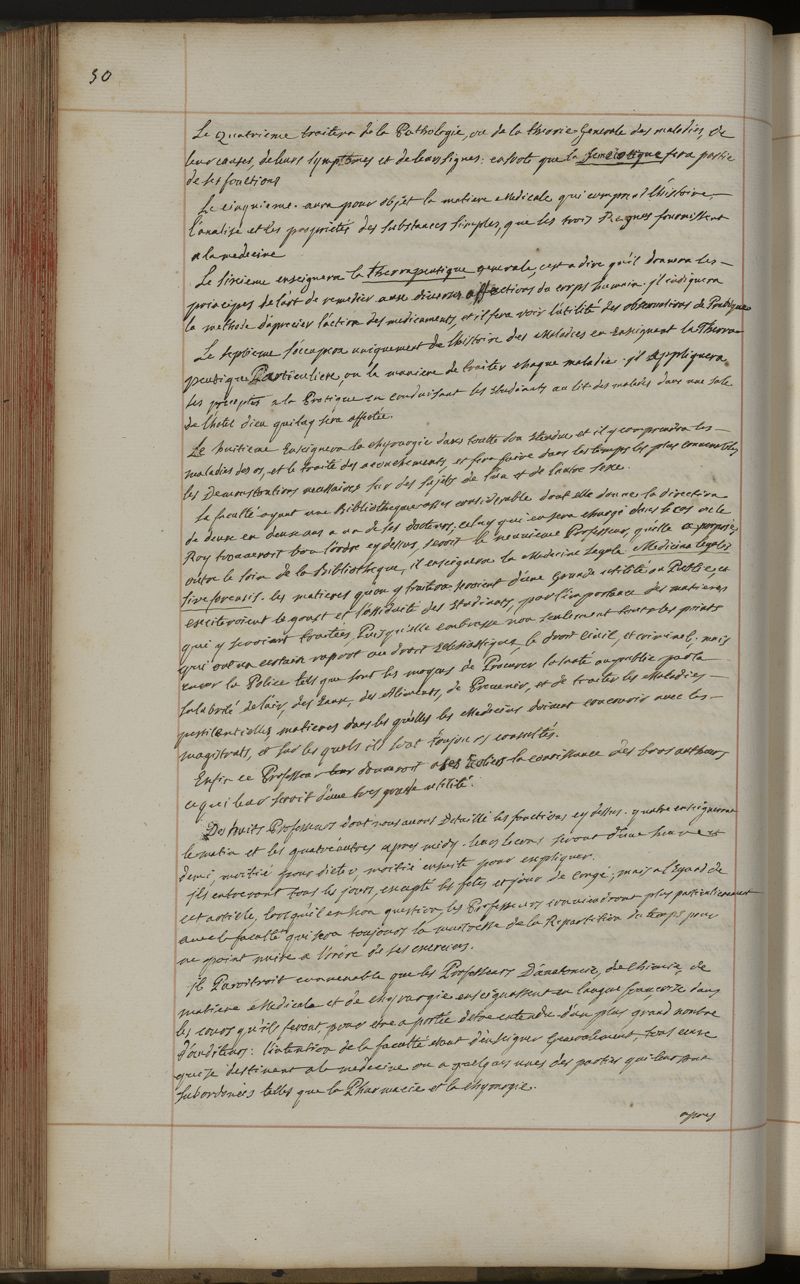 50
Le Quatrieme traitera de la Pathologie, ou de la theorie Generale des maladies, de
leurs causes, de leurs symptomes et de leurs signes: ensorte que la semeiotique fera partie
de ses fonctions
Le cinquieme aura pour objet la matiere Medicale qui comprend l'histoire,
l'analise et les proprietés des substances simples, que les trois Regnes fournissent
a la medecine
Le sixieme enseignera la therrapeutique generale, c'est a dire qu'il donnera les
principes de l'art de remedier aux diverses affections du corps humain. il indiquera
la methode d'aprecier l'action des medicaments, et il fera voir l'utilité des observations de Pratique
Le septieme s'occupera uniquement de l'histoire des Maladies en enseignant la Therra-
peutique Particuliere, ou la maniere de traiter chaque maladie. il appliquera
les preceptes a la Pratique en conduisant les etudiants au lit des malades dans une sale
de l'hotel dieu qui lay sera affectée.
Le huitieme Enseignera la chyrurgie dans toutte son etendue et il y comprendra les
maladies des os, et le traité des acouchements, et fera faire dans les temps les plus convenables
les Demonstrations necessaires sur des sujets de l'un et de l'autre sexe.
La faculté ayant une Bibliotheque assés considerable dont elle donne la direction
de deux en deux ans a un de ses docteurs, celuy qui en sera chargé dans le cas ou le
Roy trouveroit bon l'ordre cy dessus, seroit le neuvieme Professeur, qu'elle a proposé
outre le soin de la Bibliotheque, il enseignera la Medecine Legale Medicina legalis
sive forensis. les matieres qu'on y traitera seroient d'une Grande utilité au Public, et
exciteroient le goust et l'assiduité des Etudiants, par l'importance des matieres
qui y seroient traitées, Puisqu'elle embrasse non seulement tous les points
qui ont un certain raport au droit Eclesiastique, le droit Civil, et criminel; mais
encor la Police tels que sont les moyens de Procurer la santé au public par la
salubrité de l'air, des Eaux, des Aliments, de Prevenir, et de traiter les Maladies
pestilentielles matieres dans les quelles les Medecins doivent concourir avec les
magistrats, et sur les quels ils sont toujours consultés.
Enfin ce Professeur leur donneroit a ses Ecoliers la conoissance des bons autheurs
ce qui leur seroit d'une tres grande utilité.
Des huits Professeurs dont nous avons Detaillé les fonctions cy dessus. quatre enseigneront
le matin et les quatre autres apres midy. leurs lecons seront d'une heure et
demi, moitié pour dicter, moitié ensuite pour expliquer.
ils entreront tous les jours, excepté les fetes et jour de Congé; mais a l'Egard de
cet article, lorsqu'il en sera question, les Professeurs conviendront plus particulierement
avec la faculté qui sera toujours la maitresse de la Repartition du temps pour
ne point nuire a l'ordre de ses exercices.
il Paroitroit convenable que les Professeurs D'anatomie, de Chimie, de
matiere Medicale et de chyrurgie enseignassent en langue françoise dans
les cours qu'ils feront, pour etre a portée detre entendu d'un plus grand nombre
d'auditeurs: l'intention de la faculté etant d'enseigner Generalement, tous ceux
qui se destinent a la medecine ou a quelques unes des parties qui leur sont
subordonées telles que la Pharmacie et la chyrurgie.
apres